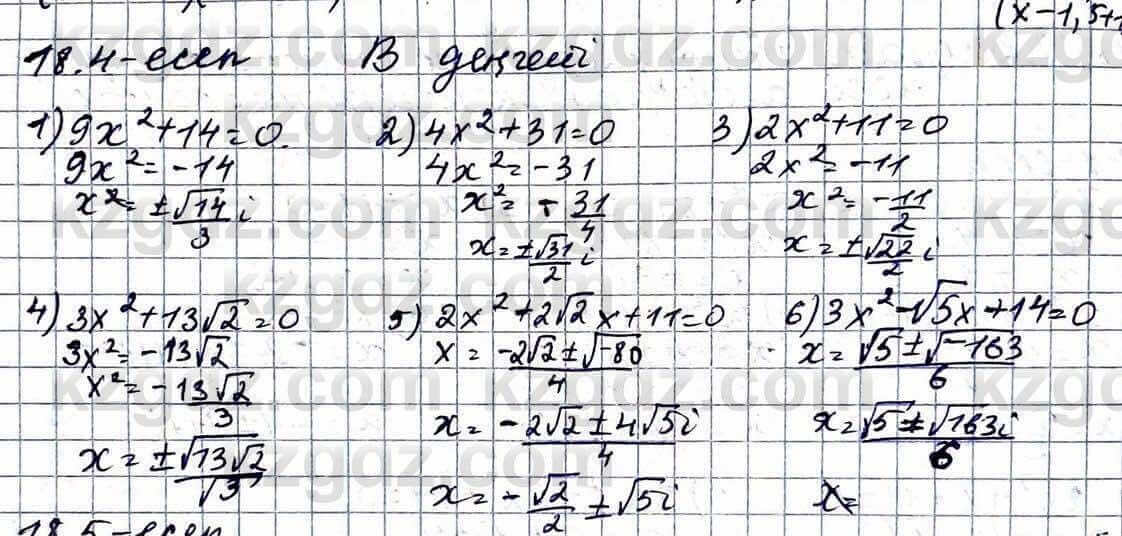 (x-1,5+
18.4-есеп В деңгейі
1) 9x²+14=0.
9x²=-14
x²= ±√14/3 i
2) 4x²+31=0
4x²=-31
x²= -31/4
x=±√31/2 i
3) 2x²+11=0
2x²=-11
x²=-11/2
x=±√22/2 i
4) 3x²+13√2=0
3x²=-13√2
x²=-13√2/3
x=±√(13√2)/√3
5) 2x²+2√2x+11=0
x= (-2√2±√-80)/4
x= (-2√2±4√5i)/4
x=-√2/2 ±√5i
6) 3x²-√5x+14=0
x= (√5±√-163)/6
x=(√5±√163i)/6
x=
18.5-есеп
kzgdz.com